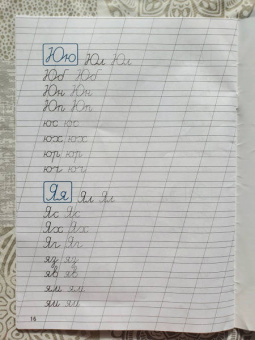 Юю Юл Юл
Юб Юб
Юн Юн
Юп Юп
юс юс
юх юх
юр юр
юг юг
Яя Ял Ял
Яс Яс
Ях Ях
Яг Яг
яз яз
яв яв
яш яш
яи яи
16